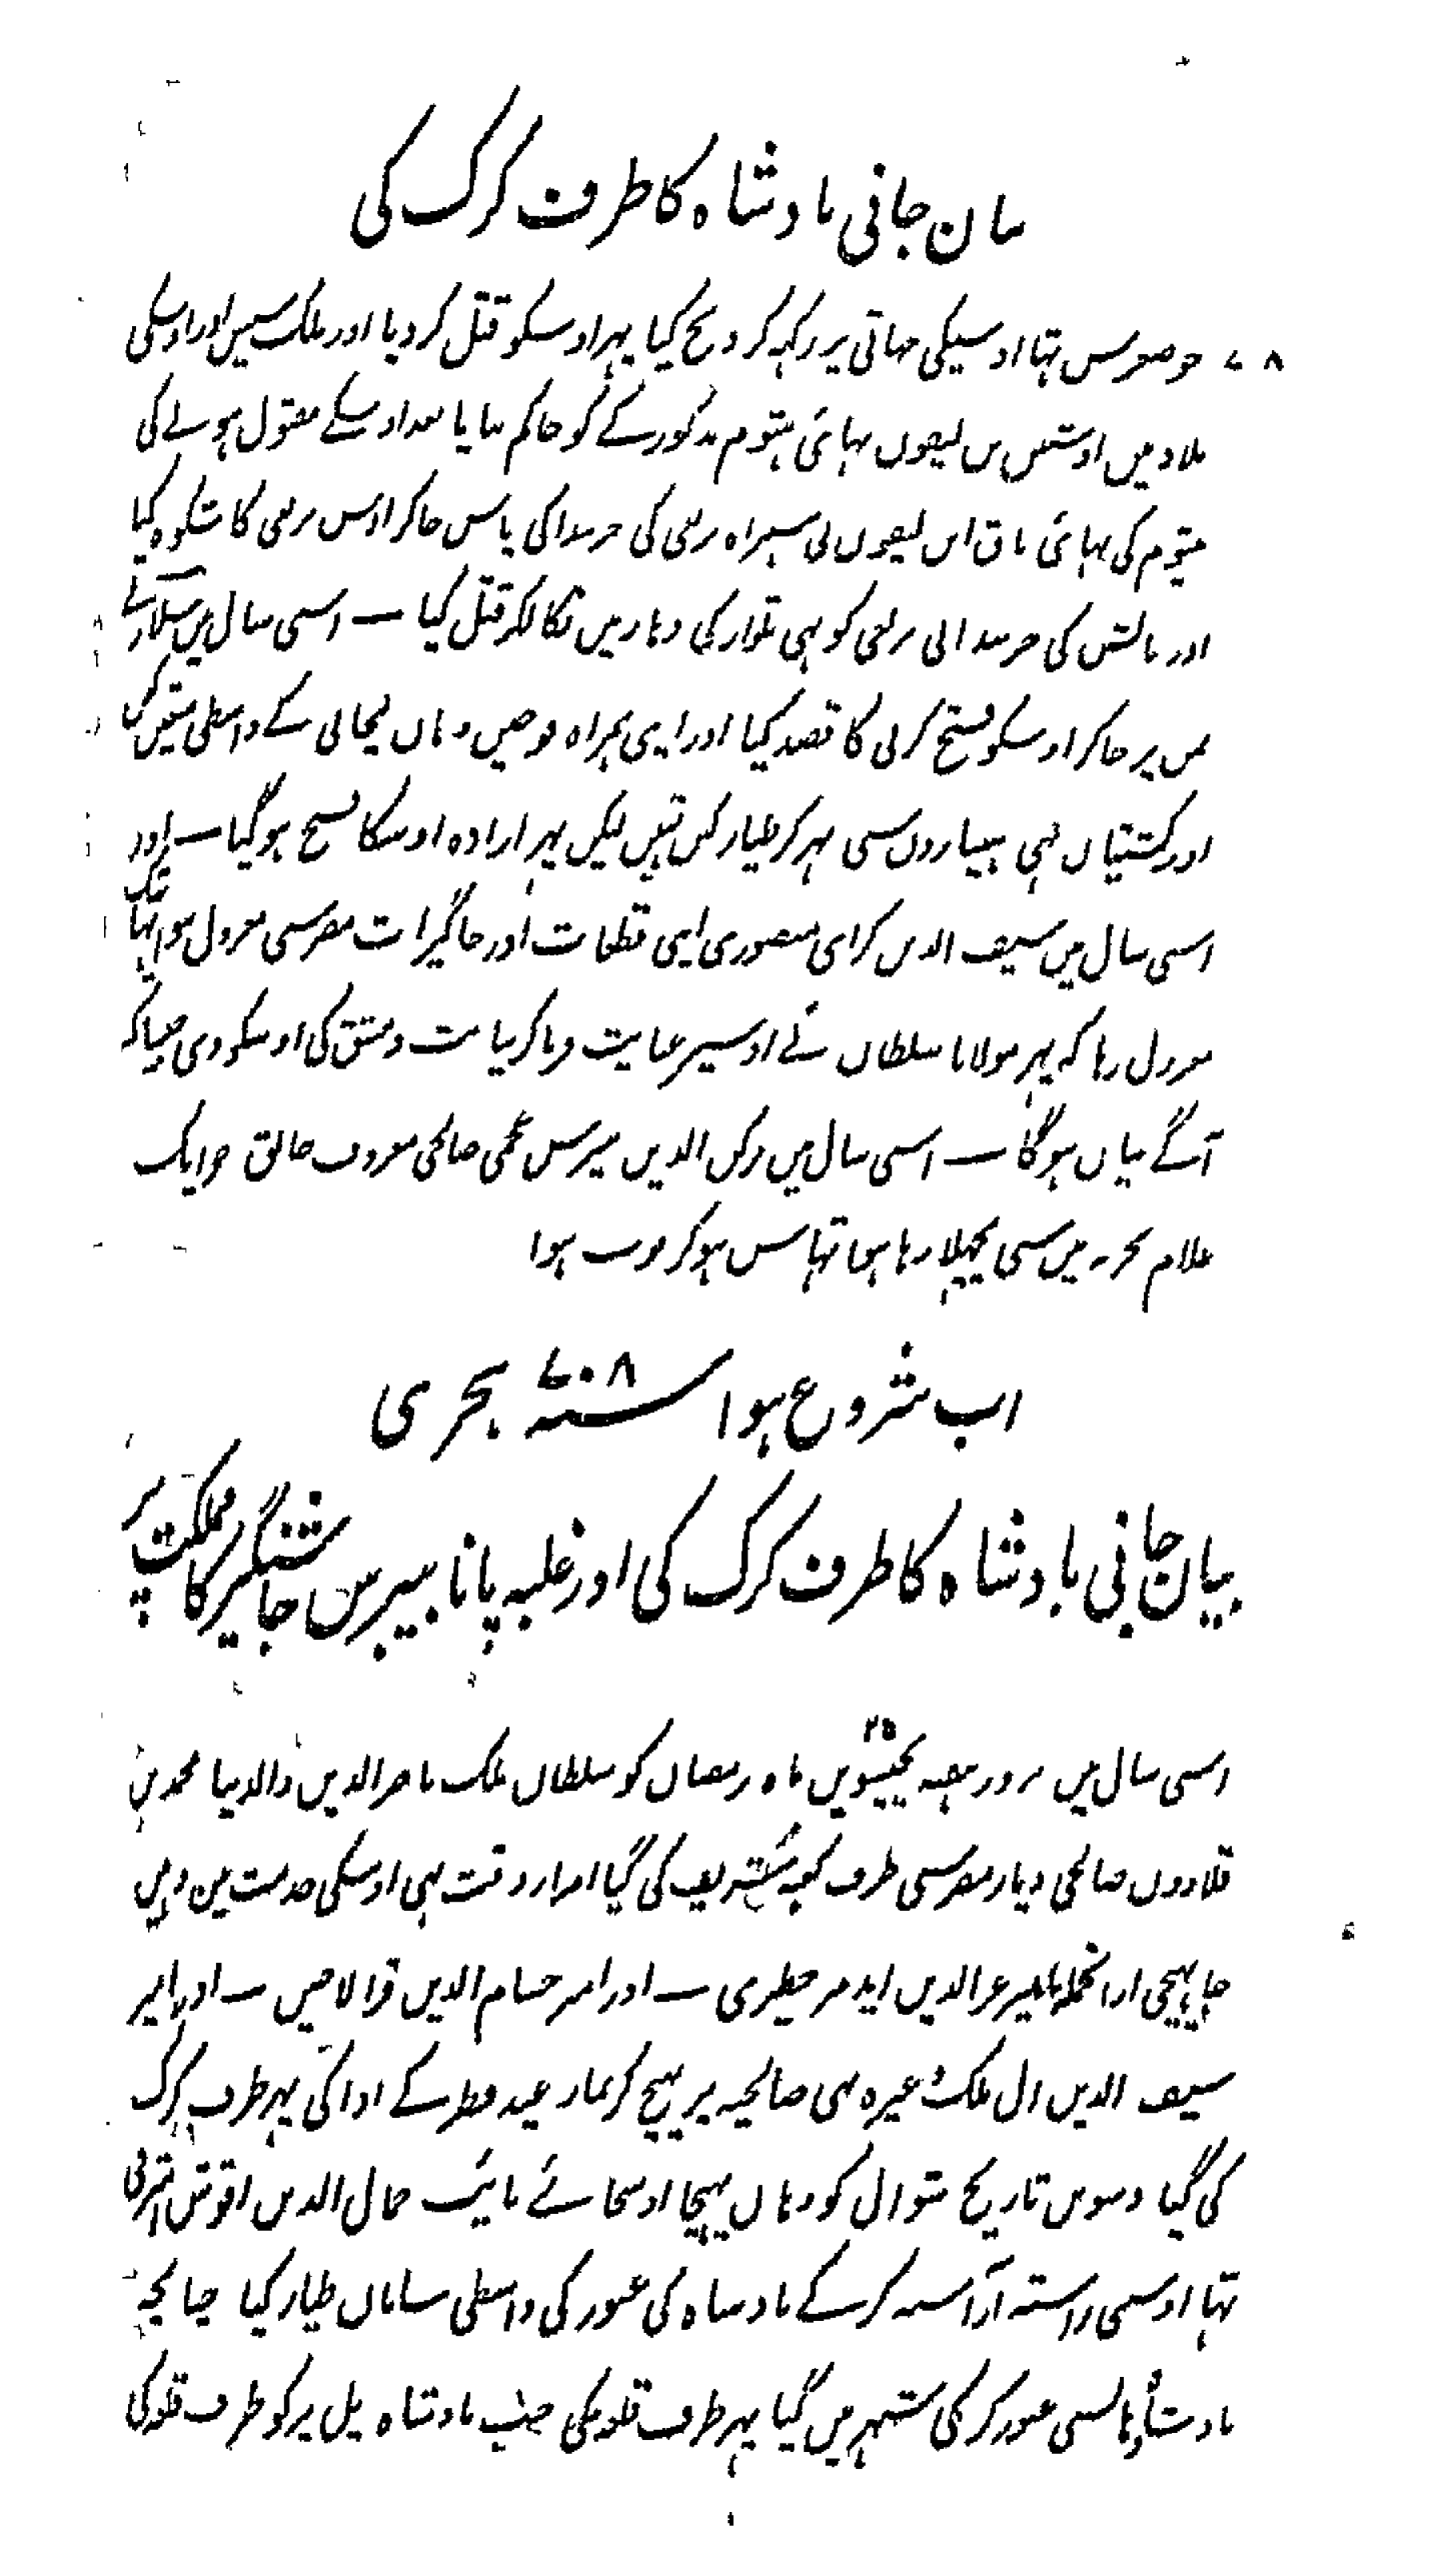 بیان جانی بادشاہ کا طرف کرک کی
۷۰۸ جو صغر سن تہا اوسیکی چہاتی پر رکہہ کر ذبح کیا پہر اوسکو قتل کر دیا اور ملک سیس اور اوسکی
بلاد میں اوشین بن لیفون بہائی ہیتوم مذکور کے کو حاکم بنایا بعد اوسکے مقتول ہونے کی
ہیتوم کی بہائی ناق ابن لیفون نی ہمراہ برلغی کی خربندا کی پاس جاکر اوس برلغی کا شکوہ کیا
اور نالش کی خربندا نی برلغی کو بہی تلوار کی دہار میں نکالکر قتل کیا — اسی سال میں سلار نے
یمن پر جاکر اوسکو فتح کرنی کا قصد کیا اور اپنی ہمراہ فوجیں وہاں لیجانی کے واسطی متعین کی
اور کشتیاں بہی ہتیاروں سی بہر کر طیار کیں تہیں لیکن پہر ارادہ اوسکا فسخ ہوگیا — اور
اسی سال میں سیف الدین کرای منصوری اپنی قطعات اور جاگیرات مصر سی معزول ہوا تہا تک
معزول رہا کہ پہر مولانا سلطان نے اوسپر عنایت فرماکر نیابت دمشق کی اوسکو دی چنانکہ
آگے بیان ہوگا — اسی سال میں رکن الدین بیبرس عجمی صالحی معروف جالق جو ایک
غلام بحریہ میں سی پچہلا رہا ہوا تہا مسن ہوکر فوت ہوا
اب شروع ہوا سنہ ۷۰۸ ہجری
بیان جانی بادشاہ کا طرف کرک کی اور غلبہ پانا بیبرس جاشنگیر کا مملکت پر
اسی سال میں بروز ہفتہ پچیسویں ۲۵ ماہ رمضان کو سلطان ملک ناصر الدین والدنیا محمد بن
قلاوون صالحی دیار مصر سی طرف کعبہ شریف کی گیا امرار وقت بہی اوسکی خدمت میں وہیں
جا پہنچی ازانجملہ امیر عز الدین ایدمر خطیری — اور امیر حسام الدین قرالاجین — اور امیر
سیف الدین ال ملک وغیرہ ہی صالحیہ پر پہنچ کر نماز عید فطر کے ادا کی پہر طرف کرک
کی گیا دسویں تاریخ شوال کو وہاں پہنچا اوسجائے نائب جمال الدین اقوش اشرفی
تہا اوسی راستہ آراستہ کرکے بادشاہ کی عبور کی واسطی سامان طیار کیا چنانچہ
بادشاہ وہانسی عبور کر کی شہر میں گیا پہر طرف قلعہ کی جب بادشاہ پل پر کو طرف قلعہ کی